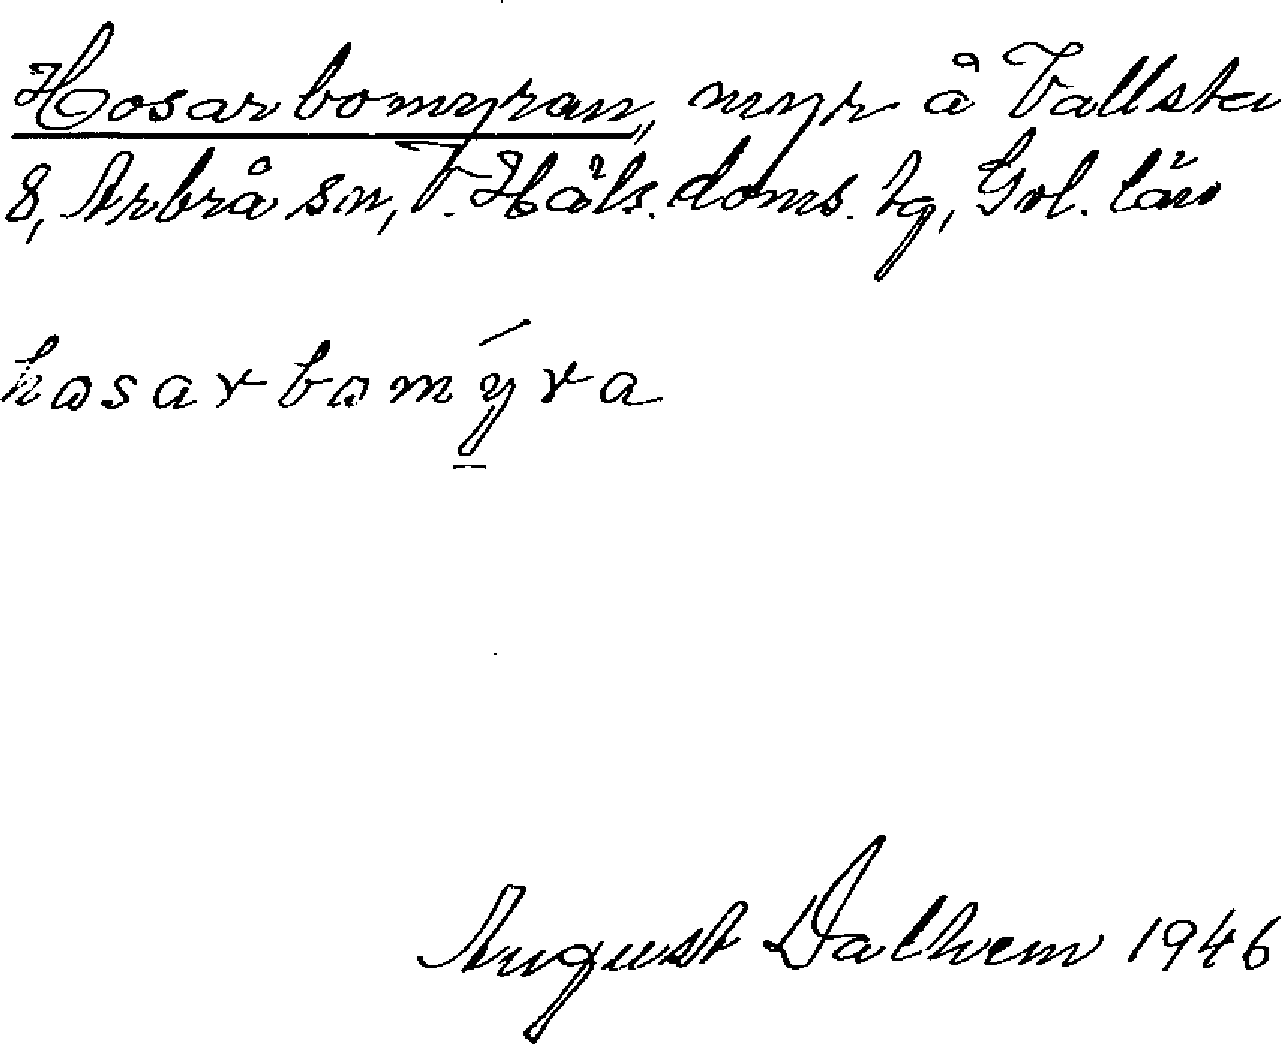 Hosarbomyran, myr å Vallsta
8, Arbrå sn, V. Häls. doms. tg, Gvl. län
hosarbomýra
August Dalhem 1946